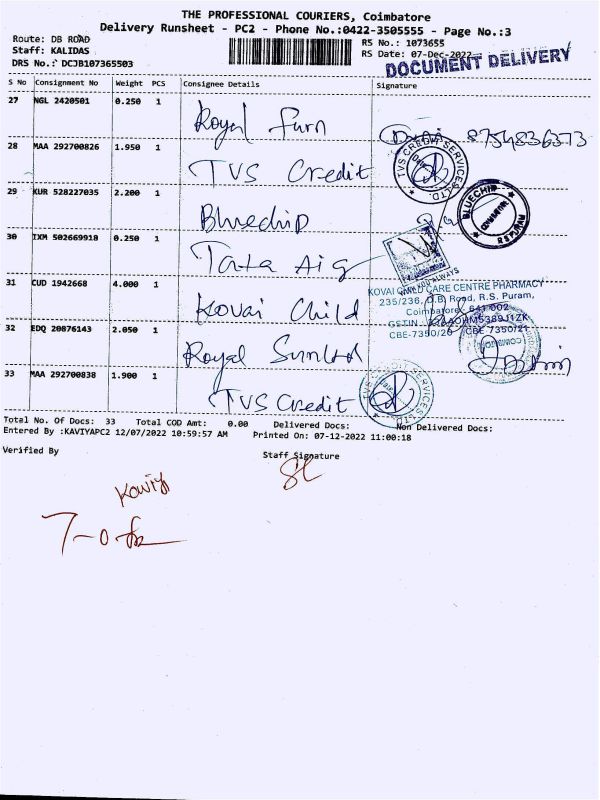 THE PROFESSIONAL COURIERS, Coimbatore
Delivery Runsheet - PC2 - Phone No.:0422-3505555 - Page No.:3
Route: DB ROAD
RS No.: 1073655
Staff: KALIDAS
RS Date: 07-Dec-2022
DRS No.: DCJB107365503
DOCUMENT DELIVERY
S No Consignment No Weight PCS Consignee Details Signature
27 NGL 2420501 0.250 1 Royal Furn 8754836373
28 MAA 292700826 1.950 1 TVS Credit
TVS CREDIT SERVICES LTD.
29 KUR 528227035 2.200 1 Bluechip
BLUECHIP COIMBATORE R S PURAM
30 IXM 502669918 0.250 1 Tata Aig
WITH YOU ALWAYS
31 CUD 1942668 4.000 1 Kovai Child
KOVAI CHILD CARE CENTRE PHARMACY
235/236, D.B. Road, R.S. Puram,
Coimbatore - 641 002
CBE-7350/20 CBE 7350/21
32 EDQ 20876143 2.050 1 Royal Sunlad
33 MAA 292700838 1.900 1 TVS Credit
TVS CREDIT SERVICES LTD
Total No. Of Docs: 33 Total COD Amt: 0.00 Delivered Docs: Non Delivered Docs:
Entered By :KAVIYAPC2 12/07/2022 10:59:57 AM Printed On: 07-12-2022 11:00:18
Verified By Staff Signature
Kaviya